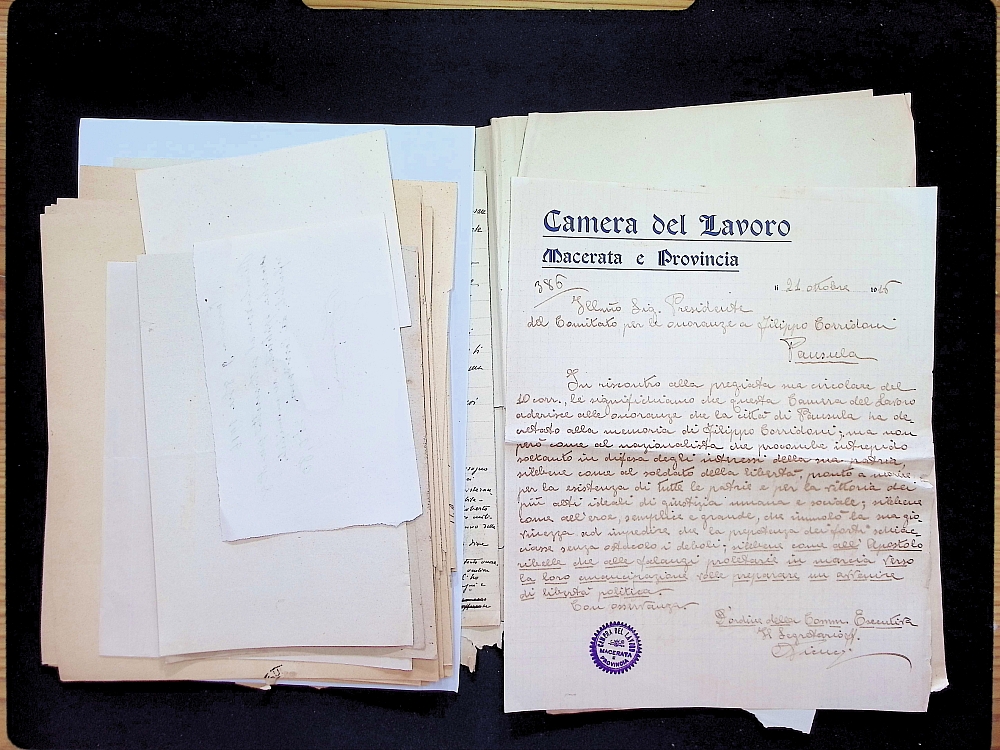 Camera del Lavoro
Macerata e Provincia
386
li 21 ottobre 1916
Illmo Sig. Presidente
del Comitato per le onoranze a Filippo Corridoni
Pausula
In riscontro alla pregiata sua circolare del
10 corr., le significhiamo che questa Camera del Lavoro
aderisce alle onoranze che la città di Pausula ha de-
cretato alla memoria di Filippo Corridoni; ma non
però come al nazionalista che procombe intrepido
soltanto in difesa degli interessi della sua patria,
sibbene come al soldato della libertà, pronto a morire
per la esistenza di tutte le patrie e per la vittoria dei
più alti ideali di giustizia umana e sociale; sibbene
come all'eroe, semplice e grande, che immolò la sua gio-
vinezza ad impedire che la prepotenza dei forti schiac-
ciasse senza ostacolo i deboli; sibbene come all'Apostolo
ribelle che alle falangi proletarie in marcia verso
la loro emancipazione volle preparare un avvenire
di libertà politica.
Con osservanza
D'ordine della Comm. Esecutiva
Il Segretario
CAMERA DEL LAVORO
MACERATA
E PROVINCIA